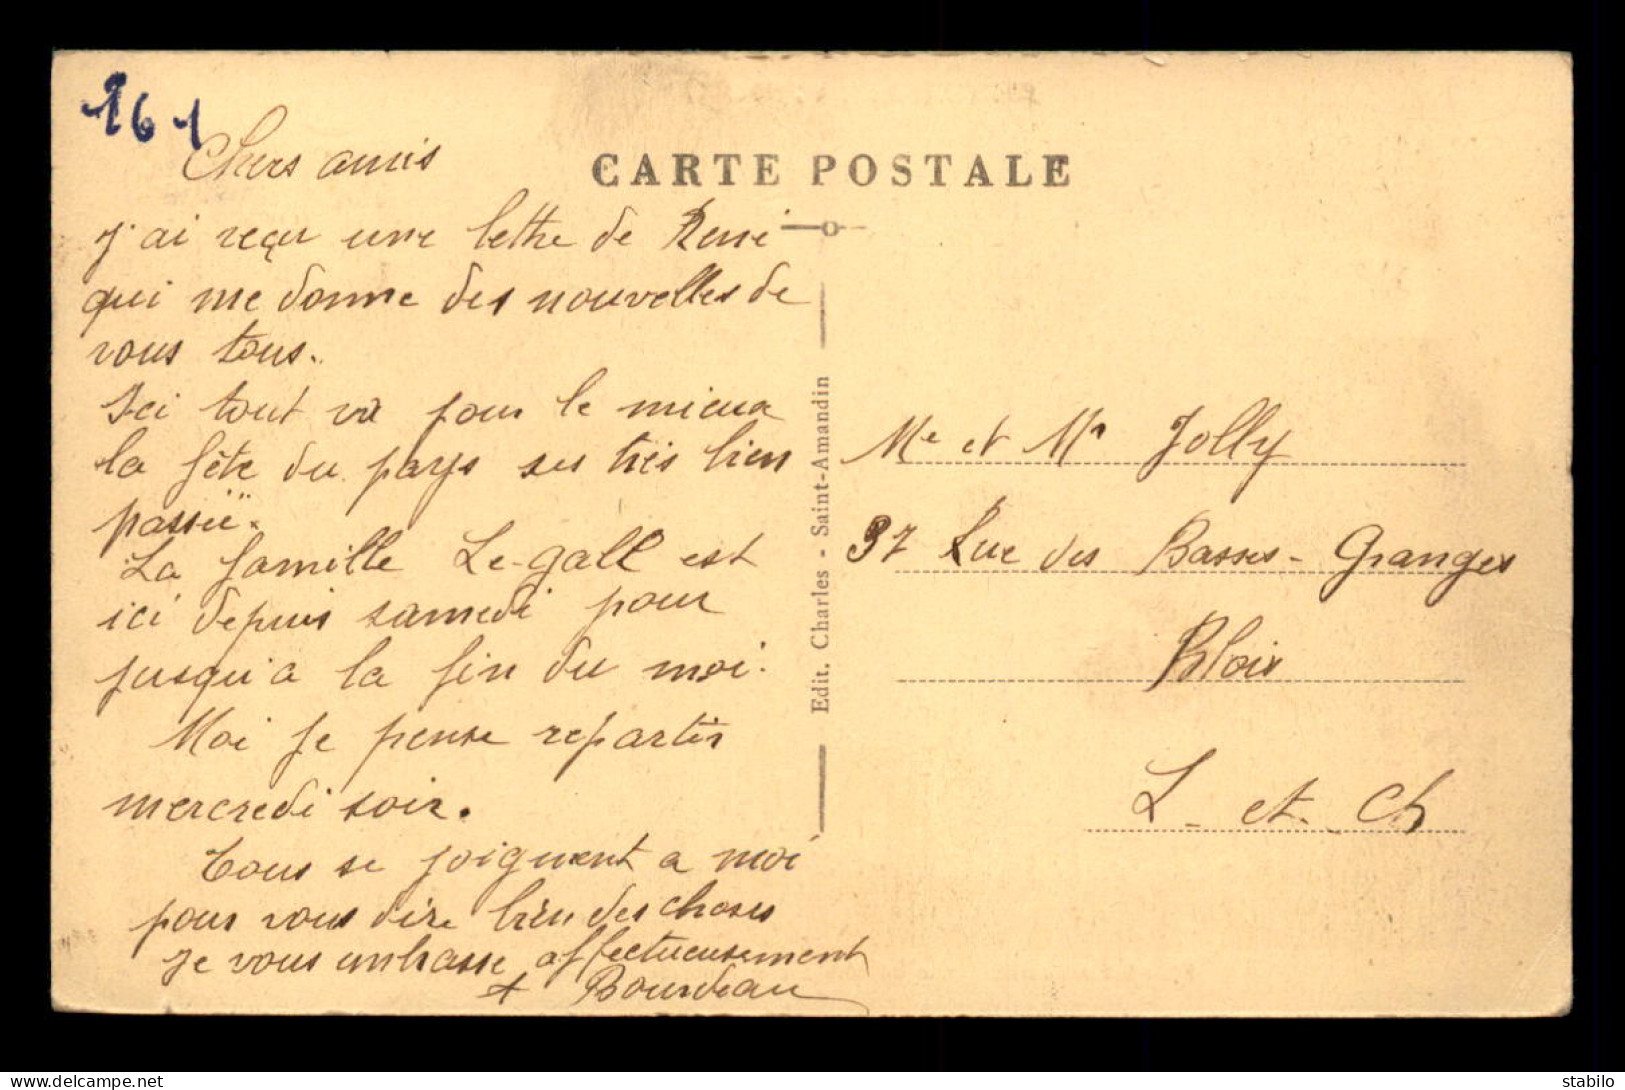 161
Chers amis
CARTE POSTALE
J'ai reçu une lettre de René
qui me donne des nouvelles de
vous tous.
Ici tout va pour le mieux
la fête du pays ses très bien
passée.
La famille Le-gall est
ici depuis samedi pour
jusqu'a la fin du moi.
Moi je pense repartir
mercredi soir.
Tous se joignent a moi
pour vous dire bien des choses
Je vous embrasse affectueusement
Bourdeau
Edit. Charles - Saint-Amandin
Me et Mr Jolly
37 Rue des Basses-Granges
Blois
L. et. Ch
stabilo
www.delcampe.net